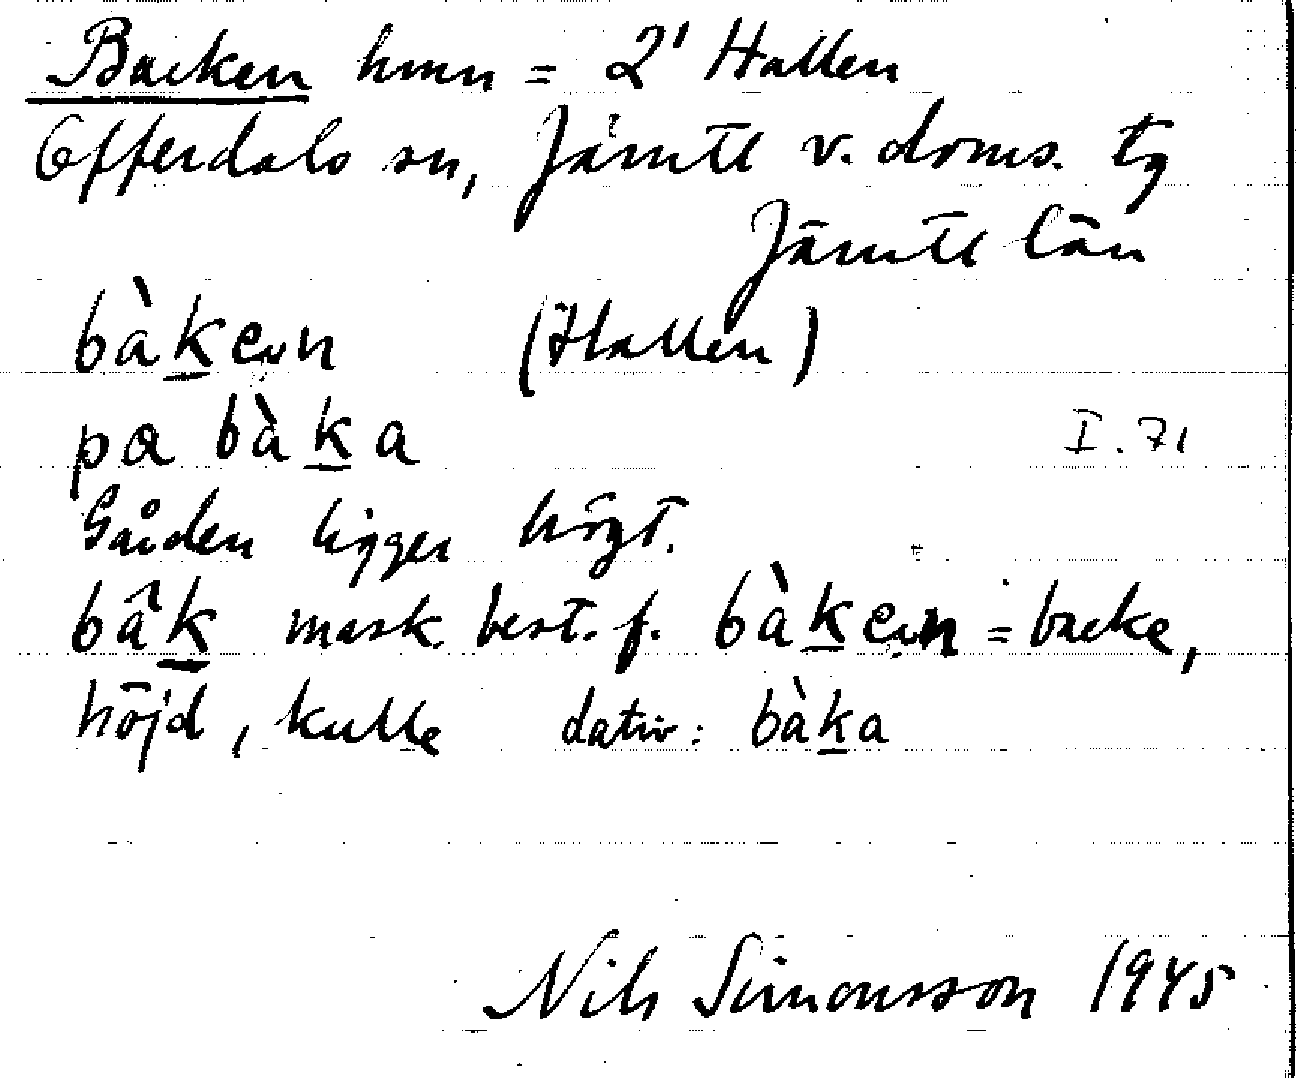 Backen hmn = 2¹ Hallen
Offerdals sn, Jämtl v. doms. tg
Jämtl län
bàk̲en (Hallen)
pa bàk̲a
I. 71
Gården ligger högt.
bâk̲ mask. best. f. bàk̲en = backe,
höjd, kulle dativ: bàk̲a
Nils Simonsson 1945